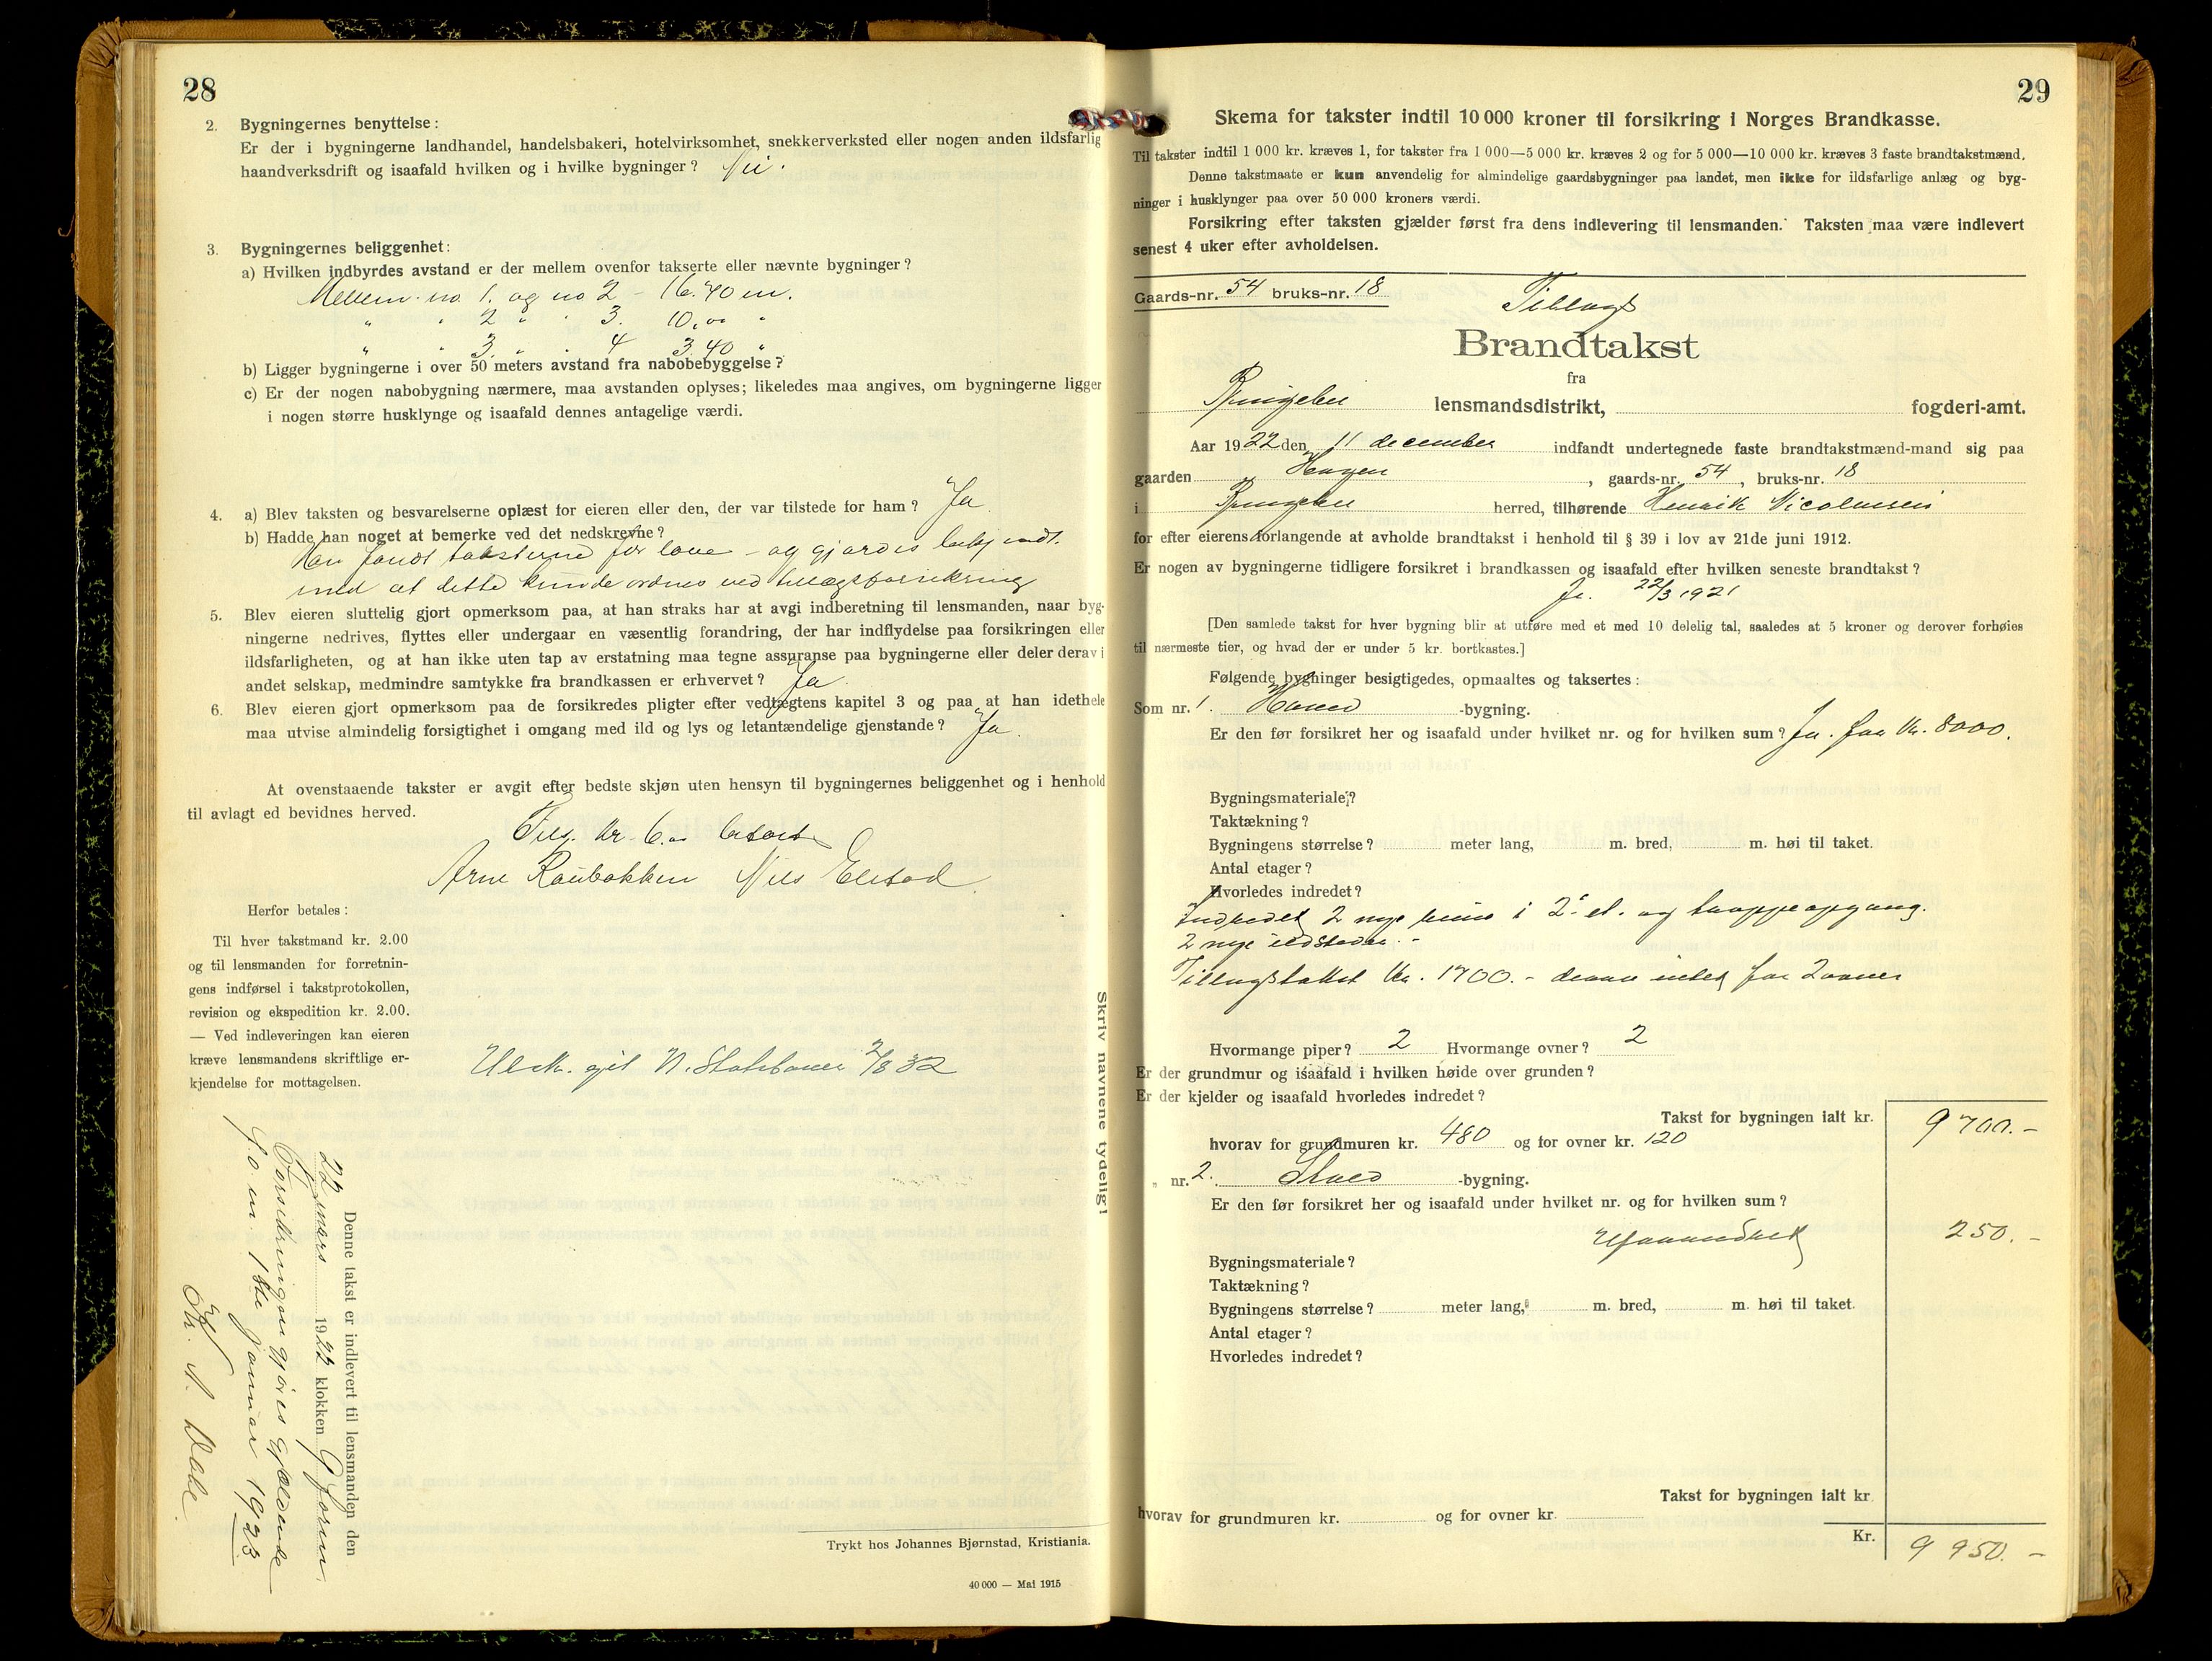 28
2. Bygningernes benyttelse:
Er der i bygningerne landhandel, handelsbakeri, hotelvirksomhet, snekkerverksted eller nogen anden ildsfarlig
haandverksdrift og isaafald hvilken og i hvilke bygninger? Nei.
3. Bygningernes beliggenhet:
a) Hvilken indbyrdes avstand er der mellem ovenfor takserte eller nævnte bygninger?
Mellem no 1. og no 2 - 16.40 m.
" " 2 " " 3. 10,00 "
" " 3. " " 4 3.40 "
b) Ligger bygningerne i over 50 meters avstand fra nabobebyggelse?
c) Er der nogen nabobygning nærmere, maa avstanden oplyses; likeledes maa angives, om bygningerne ligger
i nogen større husklynge og isaafald dennes antagelige værdi.
4. a) Blev taksten og besvarelserne oplæst for eieren eller den, der var tilstede for ham? Ja
b) Hadde han noget at bemerke ved det nedskrevne?
Han fandt taksterne for lave - og gjordes bekjendt
med at dette kunde ordnes ved tillægsforsikring
5. Blev eieren sluttelig gjort opmerksom paa, at han straks har at avgi indberetning til lensmanden, naar byg-
ningerne nedrives, flyttes eller undergaar en væsentlig forandring, der har indflydelse paa forsikringen eller
ildsfarligheten, og at han ikke uten tap av erstatning maa tegne assuranse paa bygningerne eller deler derav i
andet selskap, medmindre samtykke fra brandkassen er erhvervet? Ja.
6. Blev eieren gjort opmerksom paa de forsikredes pligter efter vedtægtens kapitel 3 og paa at han idethele
maa utvise almindelig forsigtighet i omgang med ild og lys og letantændelige gjenstande? Ja.
At ovenstaaende takster er avgit efter bedste skjøn uten hensyn til bygningernes beliggenhet og i henhold
til avlagt ed bevidnes herved.
Arne Raubakken Nils Elstad
Herfor betales:
Til hver takstmand kr. 2.00
og til lensmanden for forretnin-
gens indførsel i takstprotokollen,
revision og ekspedition kr. 2.00.
— Ved indleveringen kan eieren
kræve lensmandens skriftlige er-
kjendelse for mottagelsen.
2/8 32
Skriv navnene tydelig!
Denne takst er indlevert til lensmanden den
22 mars 1922 klokken 9 form.
Forsikringen gjøres gjældende
f. o m 1ste januar 1923
Trykt hos Johannes Bjørnstad, Kristiania.
40 000 — Mai 1915
29
Skema for takster indtil 10 000 kroner til forsikring i Norges Brandkasse.
Til takster indtil 1 000 kr. kræves 1, for takster fra 1 000—5 000 kr. kræves 2 og for 5 000—10 000 kr. kræves 3 faste brandtakstmænd.
Denne takstmaate er kun anvendelig for almindelige gaardsbygninger paa landet, men ikke for ildsfarlige anlæg og byg-
ninger i husklynger paa over 50 000 kroners værdi.
Forsikring efter taksten gjælder først fra dens indlevering til lensmanden. Taksten maa være indlevert
senest 4 uker efter avholdelsen.
Gaards-nr. 54 bruks-nr. 18
Tillægs
Brandtakst
fra
Ringebu lensmandsdistrikt, fogderi-amt.
Aar 1922 den 11 december indfandt undertegnede faste brandtakstmænd-mand sig paa
gaarden Hagen, gaards-nr. 54, bruks-nr. 18
i Ringebu herred, tilhørende Henrik Nicolausen
for efter eierens forlangende at avholde brandtakst i henhold til § 39 i lov av 21de juni 1912.
Er nogen av bygningerne tidligere forsikret i brandkassen og isaafald efter hvilken seneste brandtakst?
Ja. 22/3 1921
[Den samlede takst for hver bygning blir at utføre med et med 10 delelig tal, saaledes at 5 kroner og derover forhøies
til nærmeste tier, og hvad der er under 5 kr. bortkastes.]
Følgende bygninger besigtigedes, opmaaltes og taksertes:
Som nr. 1. Hoved -bygning.
Er den før forsikret her og isaafald under hvilket nr. og for hvilken sum? Ja. for kr. 8000.
Bygningsmateriale?
Taktækning?
Bygningens størrelse? meter lang, m. bred, m. høi til taket.
Antal etager?
Hvorledes indredet?
Indredet 2 nye rum i 2. et. og trappeopgang.
2 nye ildsteder. -
Tillægstakst kr. 1700. - derav intet for 2 ovner
Hvormange piper? 2 Hvormange ovner? 2
Er der grundmur og isaafald i hvilken høide over grunden?
Er der kjelder og isaafald hvorledes indredet?
Takst for bygningen ialt kr. 9700.-
hvorav for grundmuren kr. 480 og for ovner kr. 120
" nr. 2. -bygning.
Er den før forsikret her og isaafald under hvilket nr. og for hvilken sum?
Uforandret 250.-
Bygningsmateriale?
Taktækning?
Bygningens størrelse? meter lang, m. bred, m. høi til taket.
Antal etager?
Hvorledes indredet?
Takst for bygningen ialt kr.
hvorav for grundmuren kr. og for ovner kr.
Kr. 9 950.-